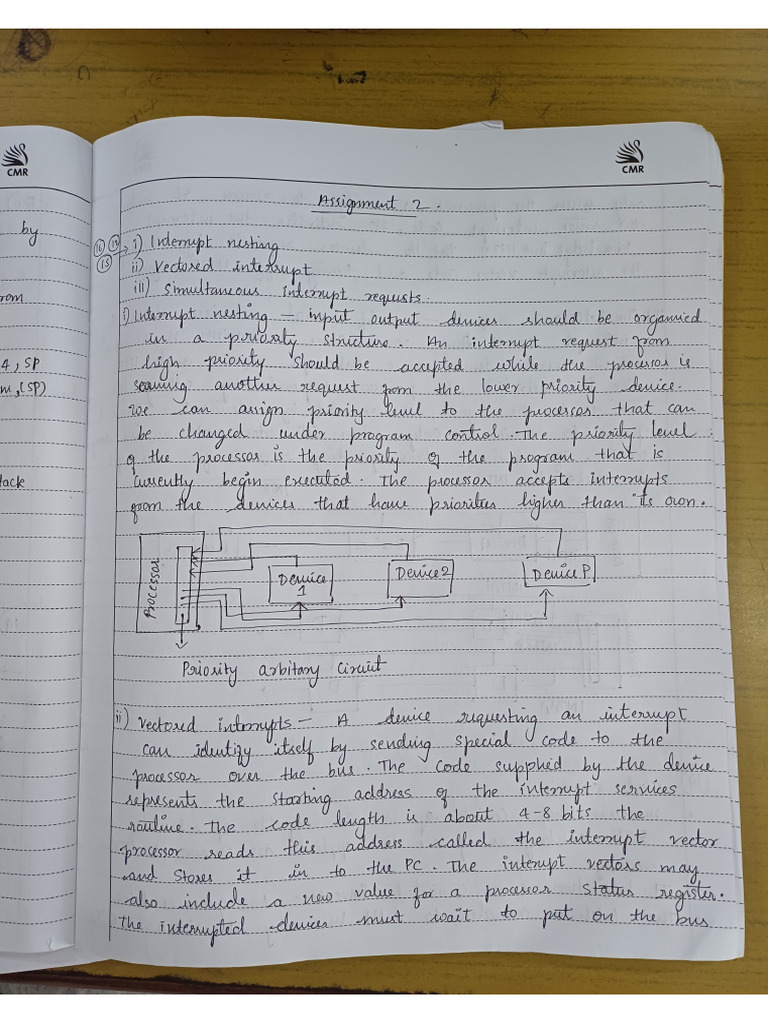 CMR
CMR
by
rom
4, SP
m, (SP)
tack
Assignment 2.
i) Interrupt nesting
ii) Vectored interrupt
15
iii) Simultaneous interrupt requests.
i) Interrupt nesting – input output devices should be organized
in a priority structure. An interrupt request from
high priority should be accepted while the processor is
servicing another request from the lower priority device.
We can assign priority level to the processor that can
be changed under program control. The priority level
of the processor is the priority of the program that is
currently begin executed. The processor accepts interrupts
from the devices that have priorities higher than its own.
Processor
Device 1
Device 2
Device P
Priority arbitary circuit
ii) Vectored interrupts – A device requesting an interrupt
can identify itself by sending special code to the
processor over the bus. The code supplied by the device
represents the starting address of the interrupt services
routine. The code length is about 4-8 bits the
processor reads this address called the interrupt vector
and stores it in to the PC. The interupt vectors may
also include a new value for a processor status register.
The interrupted devices must wait to put on the bus